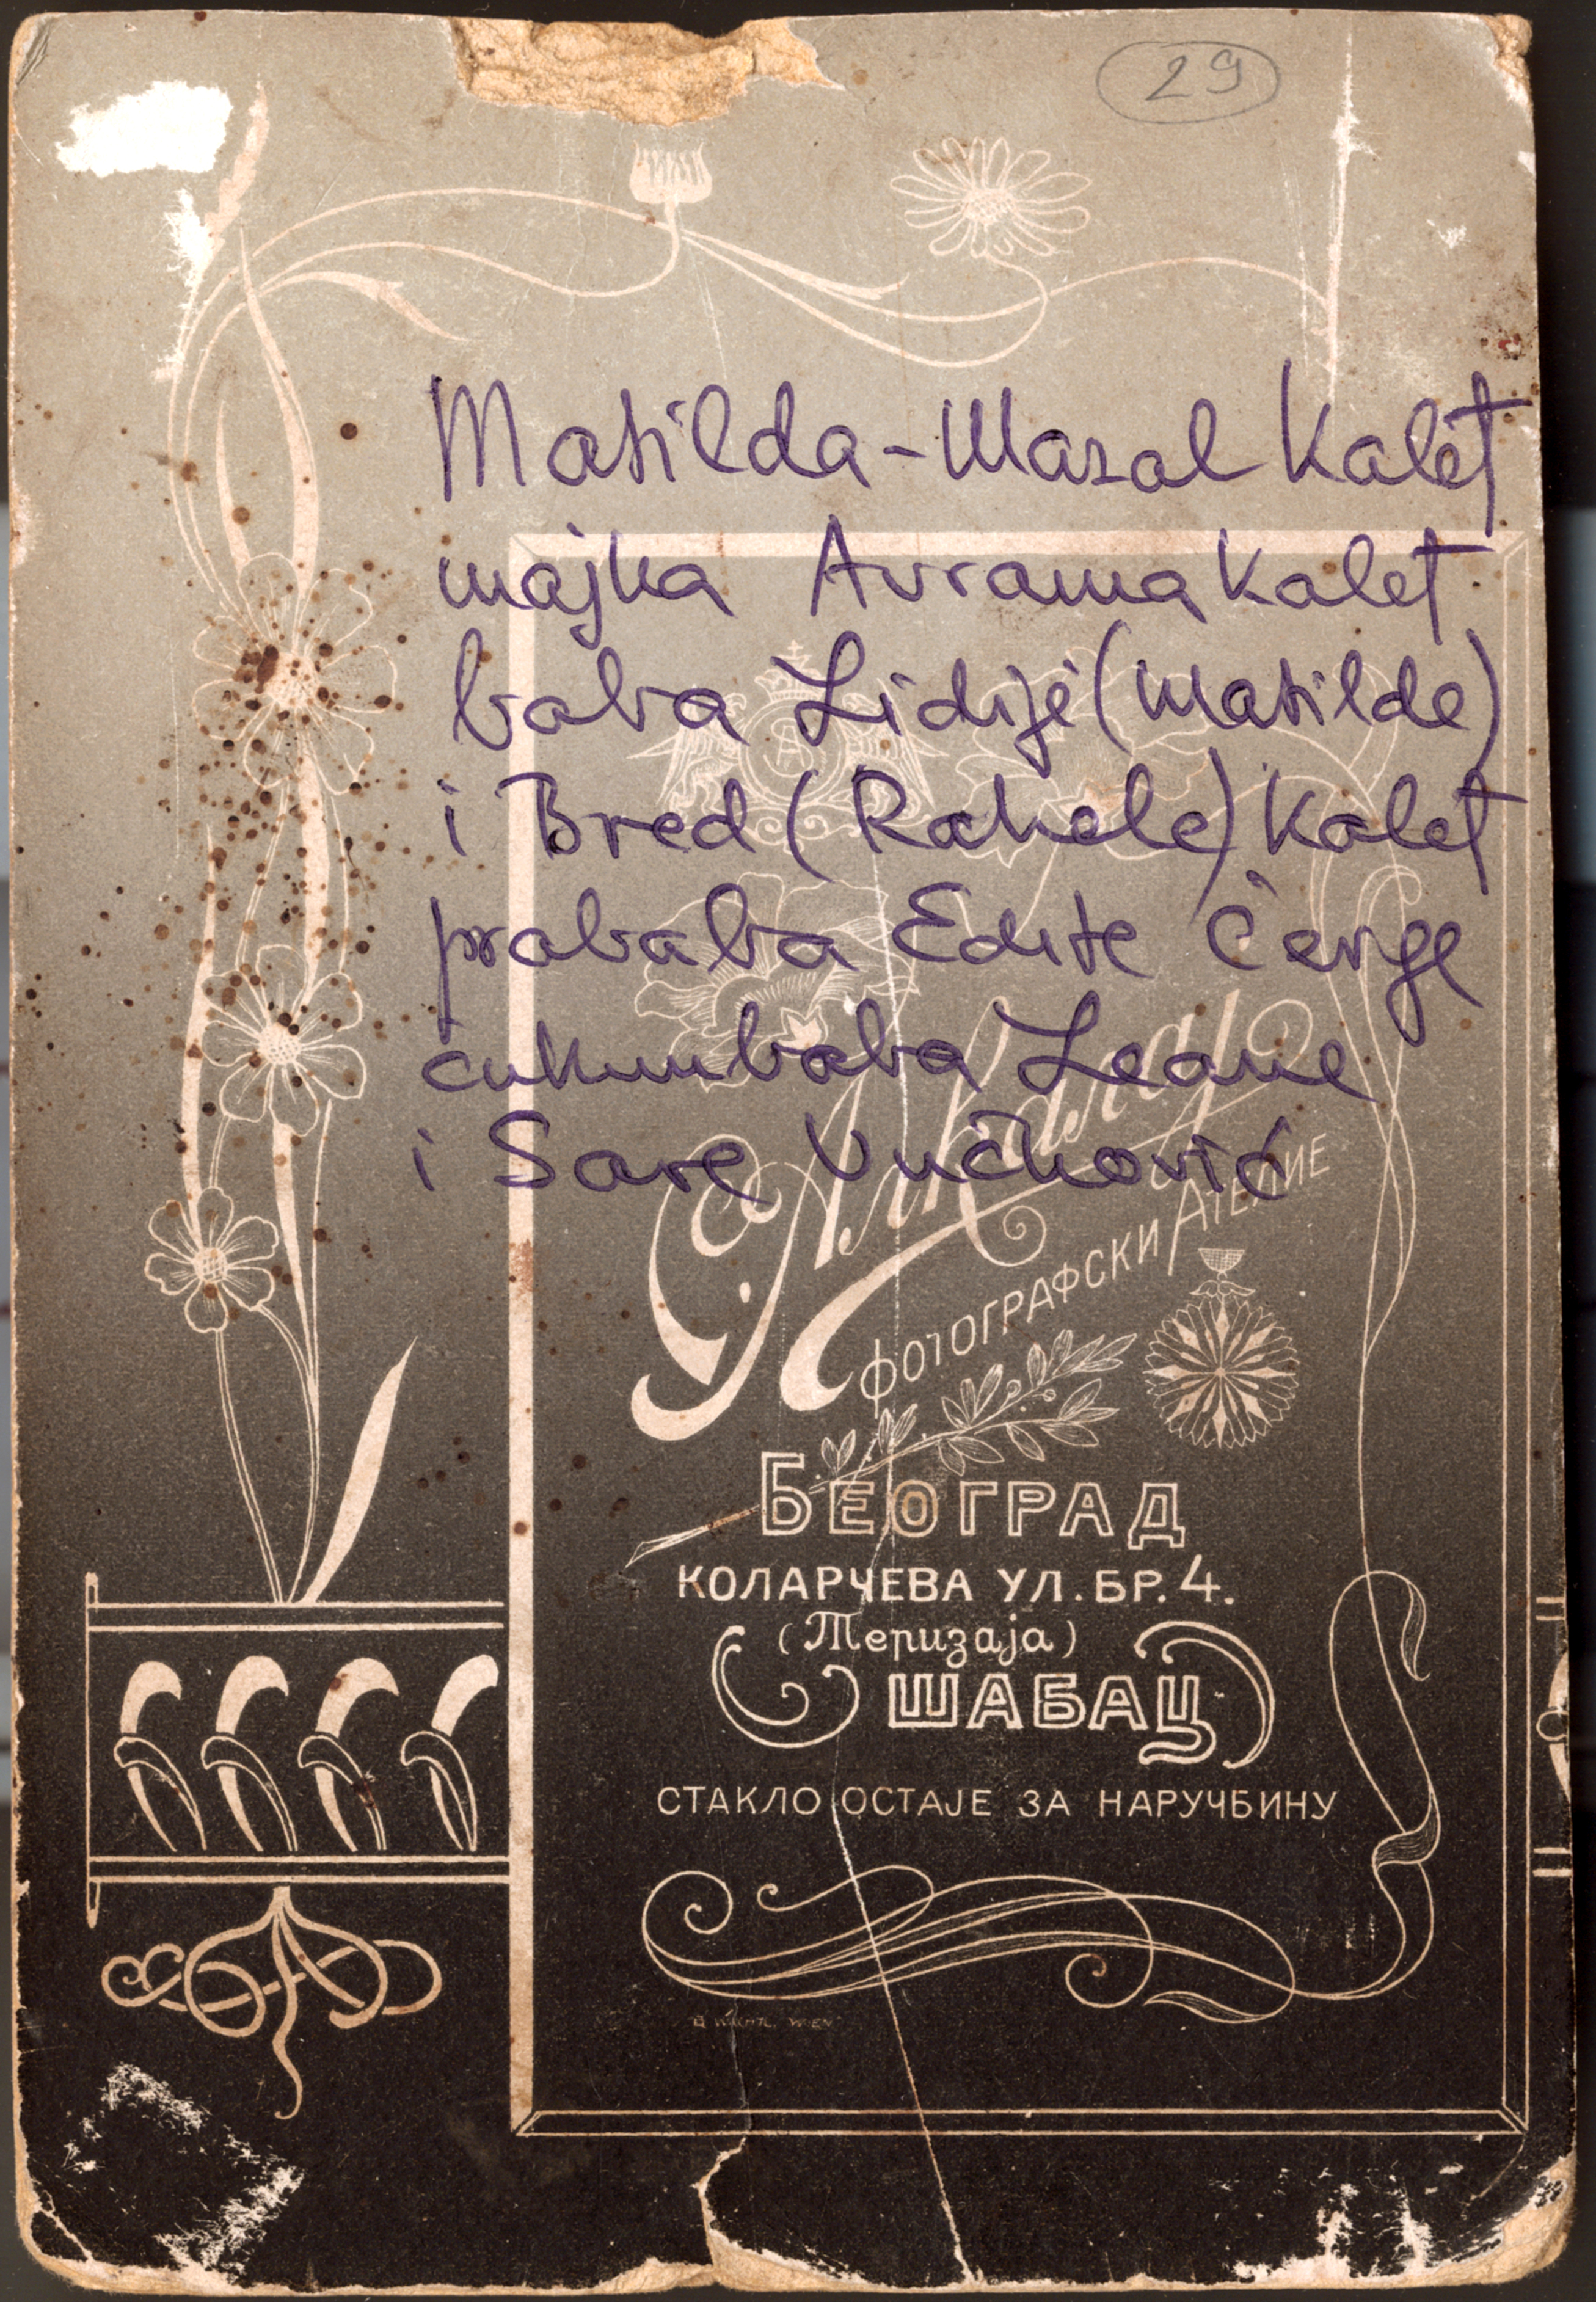 29
Matilda-Mazal Kalef
majka Avrama Kalef
baba Lidije (Matilde)
i Bred (Rahele) Kalef
prababa Edite Čerge
čukunbaba Leone
i Sare Vučković
ФОТОГРАФСКИ АТЕЛИЕ
БЕОГРАД
КОЛАРЧЕВА УЛ. БР. 4.
(Теризаја)
ШАБАЦ
СТАКЛО ОСТАЈЕ ЗА НАРУЧБИНУ
WIEN